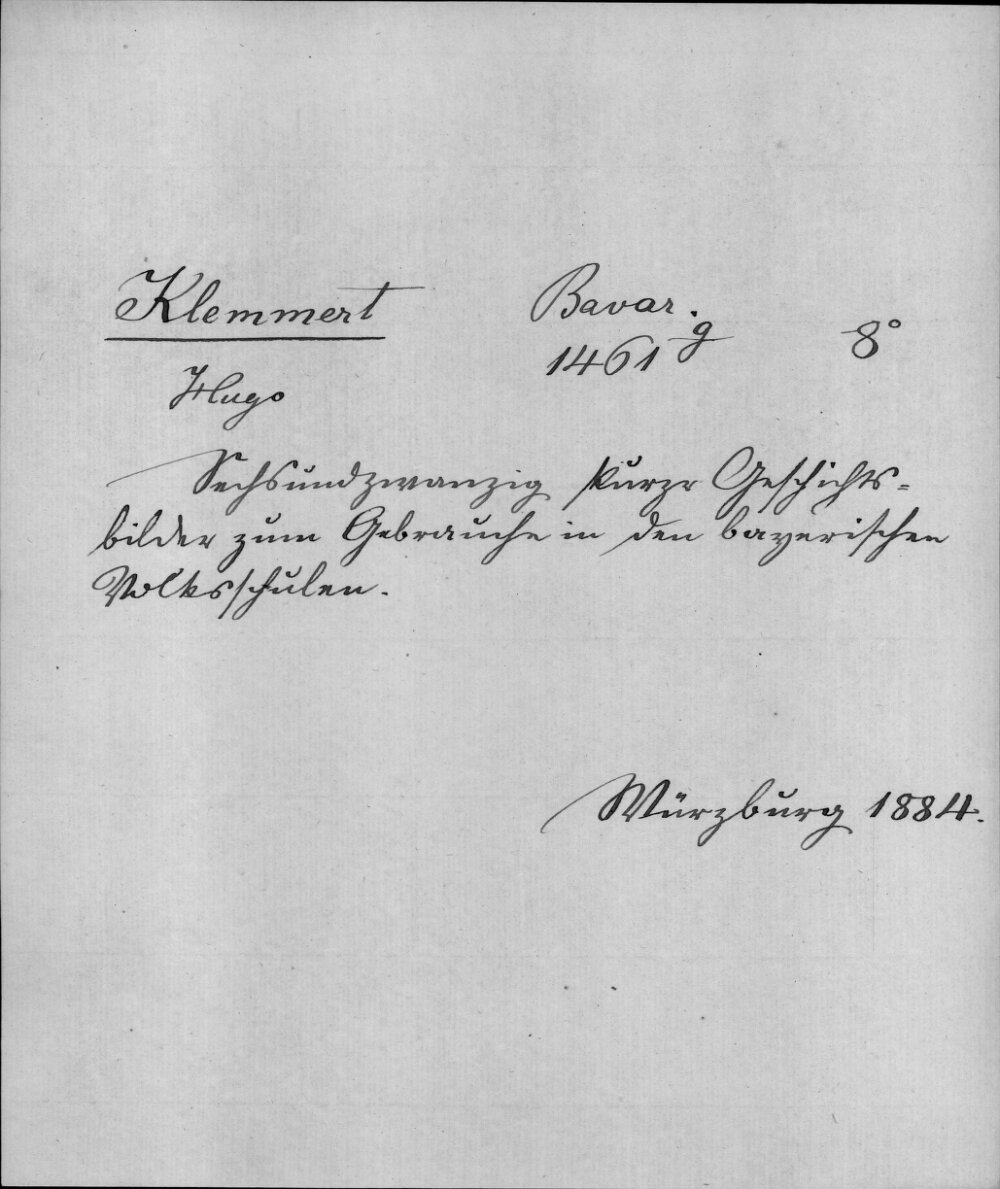 Klemmert
Bavar.
1461 g
8°
Hugo
Sechsundzwanzig kurze Geschichts=
bilder zum Gebrauche in den bayerischen
Volksschulen.
Würzburg 1884.